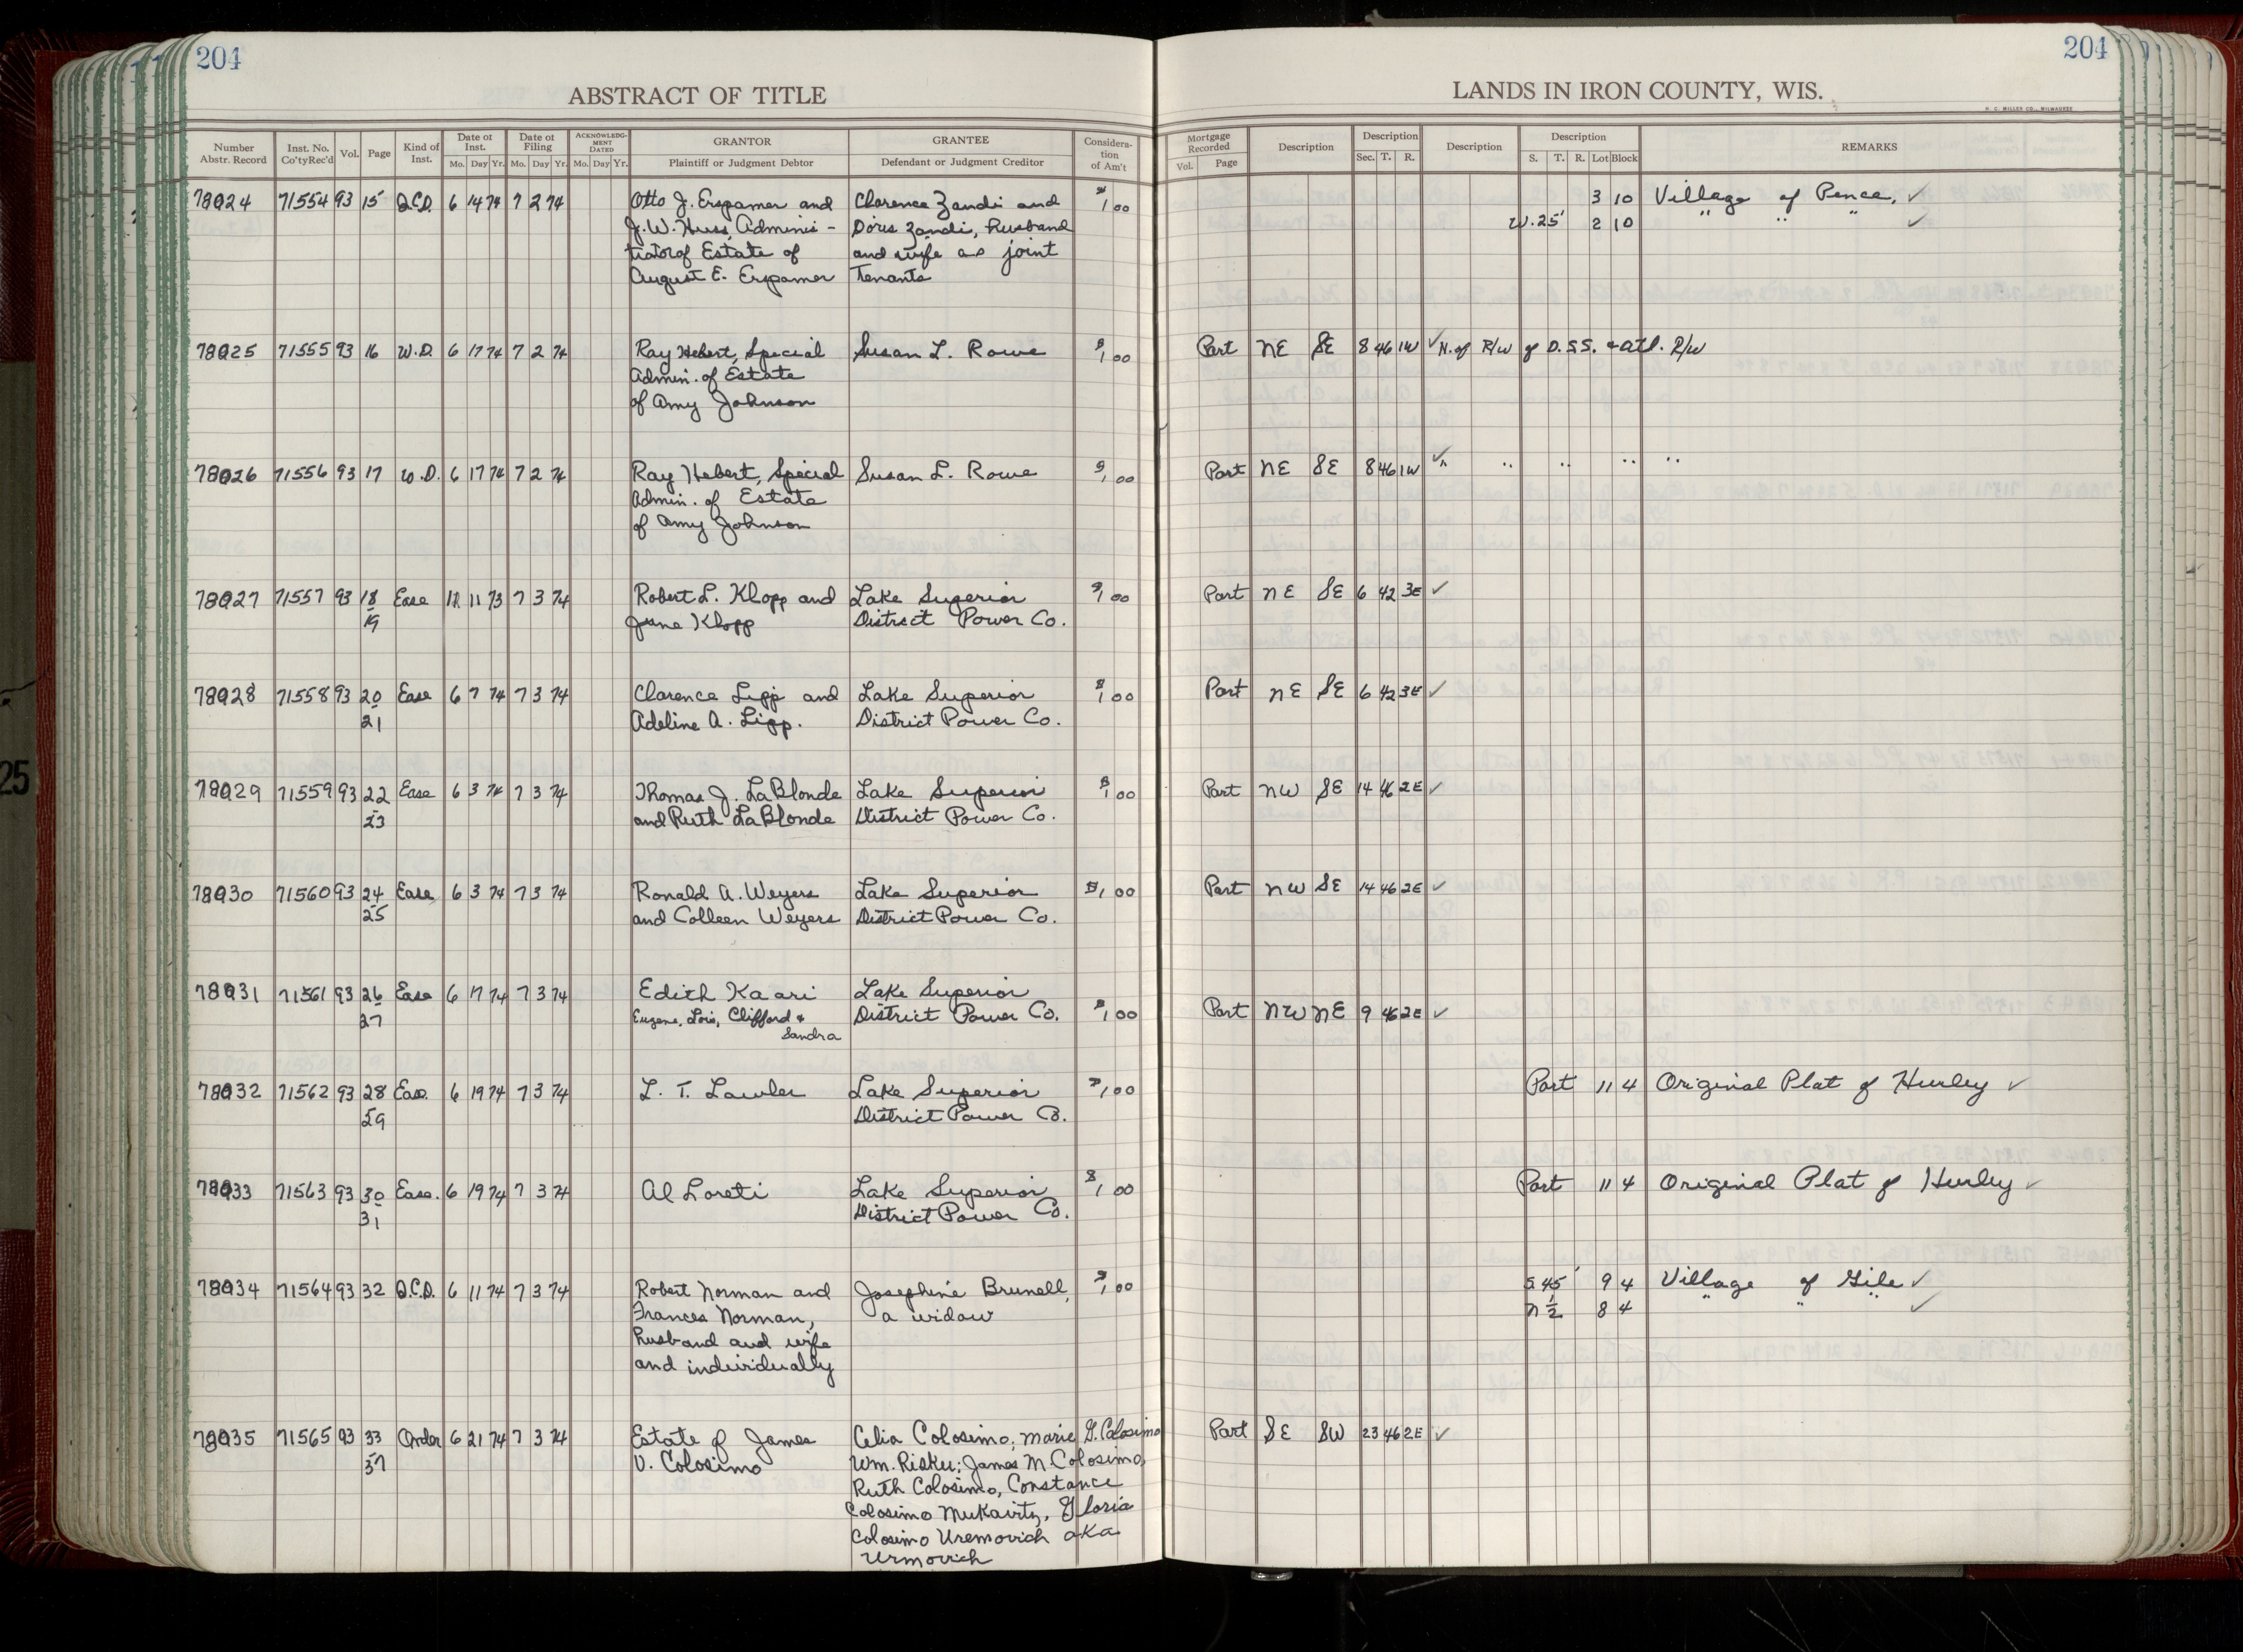 204
204
ABSTRACT OF TITLE
LANDS IN IRON COUNTY, WIS.
H. C. MILLER CO., MILWAUKEE
Number Abstr. Record Inst. No. Co'ty Rec'd Vol. Page Kind of Inst. Date of Inst. Mo. Day Yr. Date of Filing Mo. Day Yr. ACKNOWLEDGMENT DATED Mo. Day Yr. GRANTOR Plaintiff or Judgment Debtor GRANTEE Defendant or Judgment Creditor Consideration of Am't
Mortgage Recorded Vol. Page Description Description Sec. T. R. Description Description S. T. R. Lot Block REMARKS
78024 71554 93 15 Q.C.D. 6 14 74 7 2 74 Otto J. Erspamer and Clarence Zandi and $1 00 3 10 Village of Pence, ✓
J.W. Huss, Adminis- Doris Zandi, husband W. 25' 2 10 " " " ✓
trator of Estate of and wife as joint
August E. Erspamer Tenants
78025 71555 93 16 W.D. 6 17 74 7 2 74 Ray Hebert, Special Susan L. Rowe $1 00 Part NE SE 8 46 1W ✓ N. of R/W of D.S.S. & atl. R/W
Admin. of Estate
of Amy Johnson
78026 71556 93 17 W.D. 6 17 74 7 2 74 Ray Hebert, Special Susan L. Rowe $1 00 Part NE SE 8 46 1W ✓ " " " " "
Admin. of Estate
of Amy Johnson
78027 71557 93 18 Ease 12 11 73 7 3 74 Robert L. Klopp and Lake Superior $1 00 Part NE SE 6 42 3E ✓
19 June Klopp District Power Co.
78028 71558 93 20 Ease 6 7 74 7 3 74 Clarence Lipp and Lake Superior $1 00 Part NE SE 6 42 3E ✓
21 Adeline A. Lipp. District Power Co.
78029 71559 93 22 Ease 6 3 74 7 3 74 Thomas J. LaBlonde Lake Superior $1 00 Part NW SE 14 46 2E ✓
23 and Ruth LaBlonde District Power Co.
78030 71560 93 24 Ease 6 3 74 7 3 74 Ronald A. Weyers Lake Superior $1 00 Part NW SE 14 46 2E ✓
25 and Colleen Weyers District Power Co.
78031 71561 93 26 Ease 6 17 74 7 3 74 Edith Kaari Lake Superior
27 Eugene, Lois, Clifford & District Power Co. $1 00 Part NW NE 9 46 2E ✓
Sandra
78032 71562 93 28 Eas. 6 19 74 7 3 74 L. T. Lawler Lake Superior $1 00 Part 11 4 Original Plat of Hurley ✓
29 District Power Co.
78033 71563 93 30 Ease. 6 19 74 7 3 74 Al Loreti Lake Superior $1 00 Part 11 4 Original Plat of Hurley ✓
31 District Power Co.
78034 71564 93 32 Q.C.D. 6 11 74 7 3 74 Robert Norman and Josephine Brunell, $1 00 S. 45' 9 4 Village of Gile ✓
Frances Norman, a widow N ½ 8 4 " " " ✓
husband and wife
and individually
78035 71565 93 33 Order 6 21 74 7 3 74 Estate of James Celia Colosimo; Marie G. Colosimo Part SE SW 23 46 2E ✓
37 V. Colosimo Wm. Risku; James M. Colosimo,
Ruth Colosimo, Constance
Colosimo Mukavitz, Gloria
Colosimo Uremovich aka
Urmovich
25